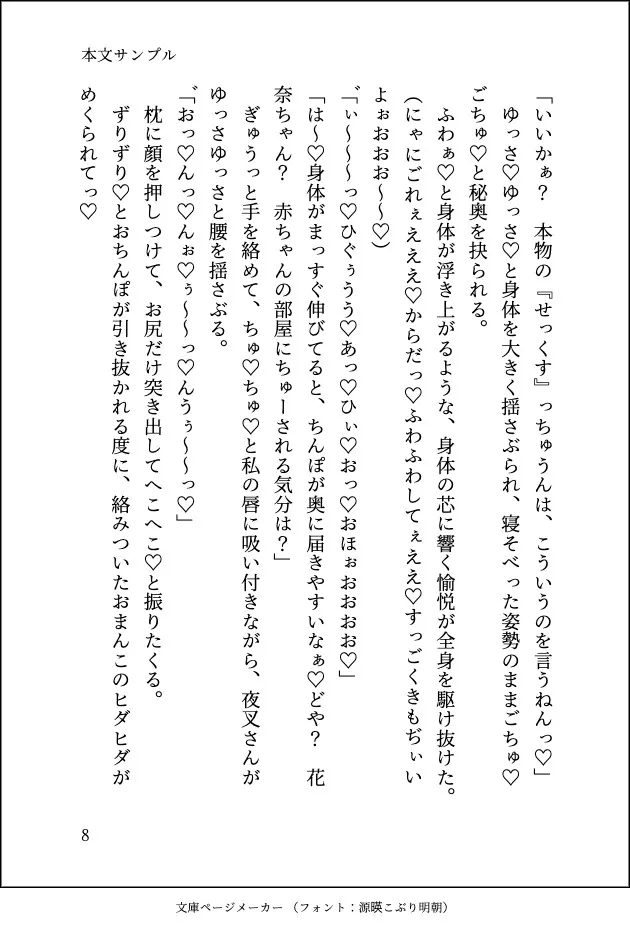 本文サンプル
「いいかぁ？　本物の『せっくす』っちゅうんは、こういうのを言うねんっ♡」
ゆっさ♡ゆっさ♡と身体を大きく揺さぶられ、寝そべった姿勢のままごちゅ♡
ごちゅ♡と秘奥を抉られる。
ふわぁ♡と身体が浮き上がるような、身体の芯に響く愉悦が全身を駆け抜けた。
（にゃにごれぇえええ♡からだっ♡ふわふわしてぇええ♡すっごくきもぢぃい
よぉおおお～～♡）
「゛ぃ～～～っ♡ひぐぅうう♡あっ♡ひぃ♡おっ♡おほぉおおおお♡」
「は～♡身体がまっすぐ伸びてると、ちんぽが奥に届きやすいなぁ♡どや？　花
奈ちゃん？　赤ちゃんの部屋にちゅーされる気分は？」
ぎゅうっと手を絡めて、ちゅ♡ちゅ♡と私の唇に吸い付きながら、夜叉さんが
ゆっさゆっさと腰を揺さぶる。
「゛おっ♡んっ♡んぉ♡ぅ～～っ♡んうぅ～～っ♡」
枕に顔を押しつけて、お尻だけ突き出してへこへこ♡と振りたくる。
ずりずり♡とおちんぽが引き抜かれる度に、絡みついたおまんこのヒダヒダが
めくられてっ♡
8
文庫ページメーカー（フォント：源暎こぶり明朝）